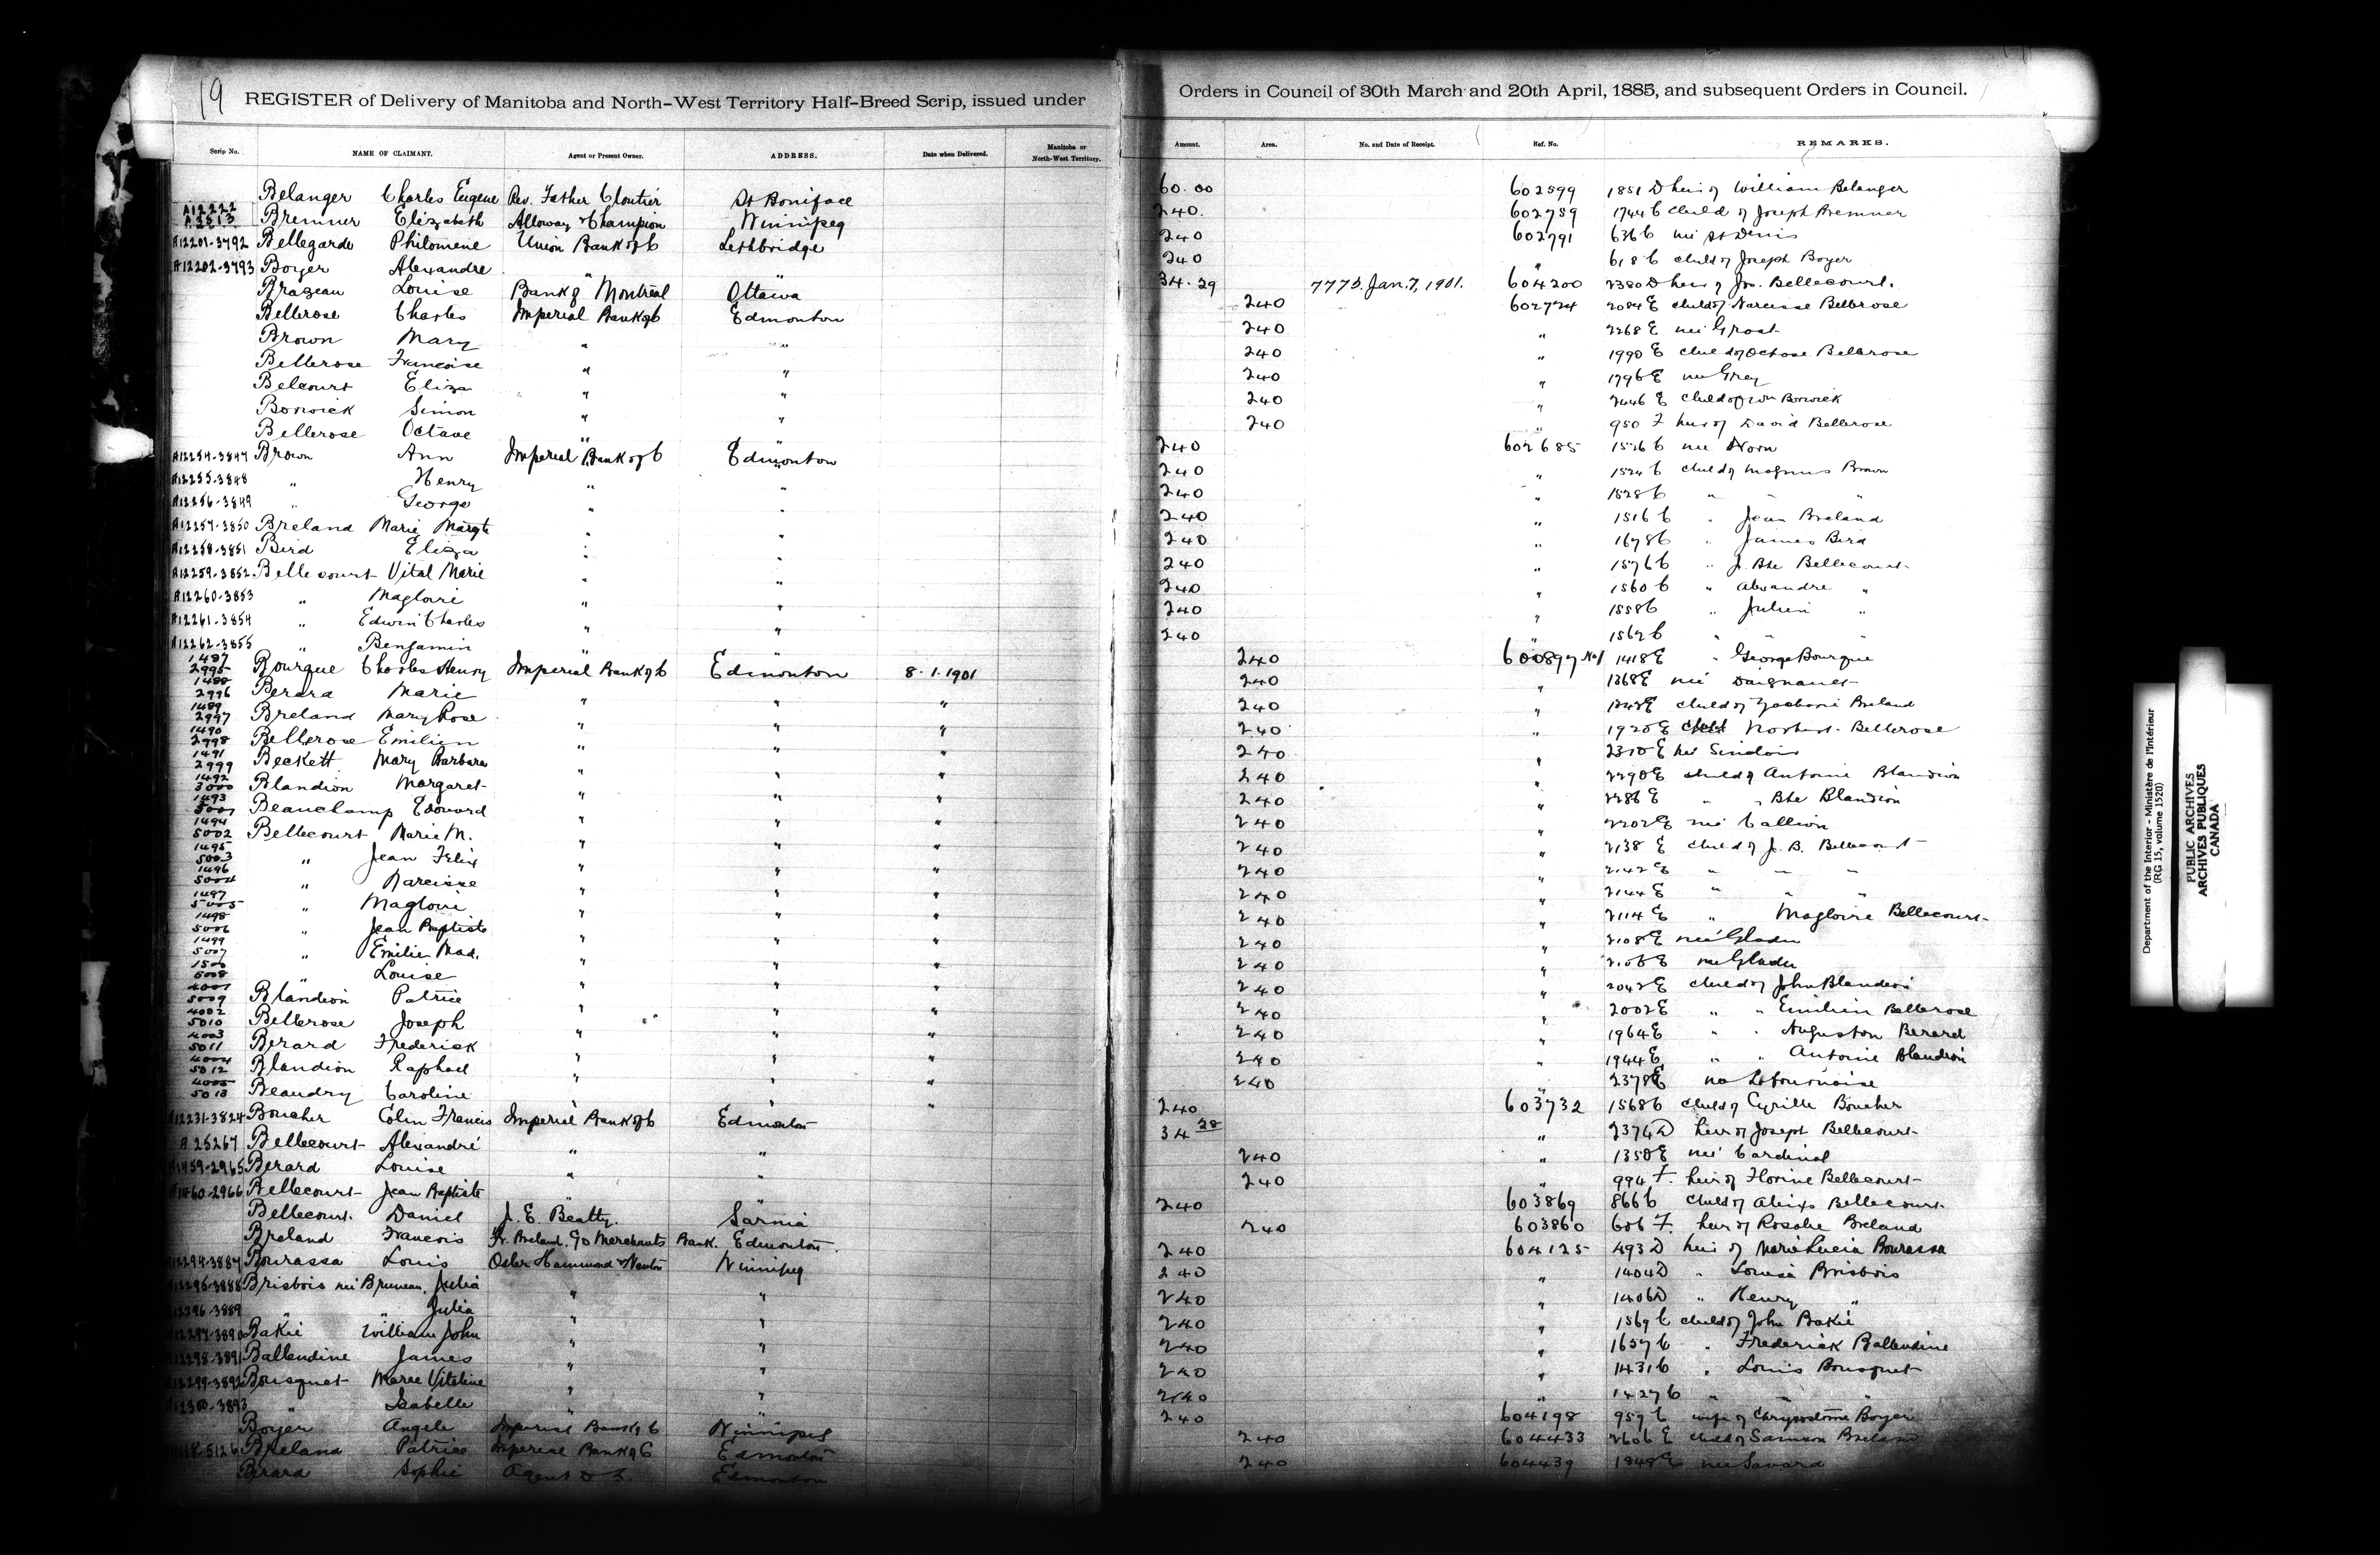 19
REGISTER of Delivery of Manitoba and North-West Territory Half-Breed Scrip, issued under Orders in Council of 30th March and 20th April, 1885, and subsequent Orders in Council.
Scrip No. NAME OF CLAIMANT. Agent or Present Owner. ADDRESS. Date when Delivered. Manitoba or North-West Territory. Amount. Area. No. and Date of Receipt. Ref. No. REMARKS.
Belanger Charles Eugene Rev. Father Cloutier St Boniface 60.00 602599 1851 D heir of William Belanger
A12222 A3813 Bremner Elizabeth Alloway & Champion Winnipeg 240. 602759 1744 C child of Joseph Bremner
A12201-3792 Bellegarde Philomene Union Bank of C Lethbridge 240 602791 636 C née St Denis
A12202-3793 Boyer Alexandre " " 240 " 618 C child of Joseph Boyer
Brazeau Louise Bank of Montreal Ottawa 34.29 7775. Jan. 7, 1901. 604200 2380 D heir of Jos. Bellecourt.
Bellerose Charles Imperial Bank of C Edmonton 240 602724 2084 E child of Narcisse Bellerose
Brown Mary " " 240 " 2268 E née Groat
Bellerose Francoise " " 240 " 1990 E child of Octave Bellerose
Belcourt Eliza " " 240 " 1796 E née Grey
Borwick Simon " " 240 " 2446 E child of Wm Borwick
Bellerose Octave " " 240 " 950 F heir of David Bellerose
A12254-3847 Brown Ann Imperial Bank of C Edmonton 240 602685 1526 C née Norn
A12255-3848 " Henry " " 240 " 1524 C child of Magnus Brown
A12256-3849 " George " " 240 " 1528 C " " "
A12257-3850 Breland Marie Margte " " 240 " 1516 C " Jean Breland
A12258-3851 Bird Eliza " " 240 " 1678 C " James Bird
A12259-3852 Bellecourt Vital Marie " " 240 " 1576 C " J. Bte Bellecourt
A12260-3853 " Magloire " " 240 " 1560 C " Alexandre "
A12261-3854 " Edwin Charles " " 240 " 1558 C " Julien "
A12262-3855 " Benjamin " " 240 " 1562 C " " "
1487 2995 Bourque Charles Henry Imperial Bank of C Edmonton 8.1.1901 240 600897 No1 1418 E " George Bourque
1488 2996 Berard Marie " " " 240 " 1368 E née Daignault
1489 2997 Breland Mary Rose " " " 240 " 1242 E child of Zacharie Breland
1490 2998 Bellerose Emilien " " " 240 " 1920 E child Norbert Bellerose
1491 2999 Beckett Mary Barbara " " " 240 " 2310 E née Sinclair
1492 3000 Blandion Margaret " " " 240 " 2290 E child of Antoine Blandion
1493 5001 Beauchamp Edouard " " " 240 " 2286 E " " Bte Blandion
1494 5002 Bellecourt Marie M. " " " 240 " 2202 E née Callion
1495 5003 " Jean Felix " " " 240 " 2138 E child of J. B. Bellecourt
1496 5004 " Narcisse " " " 240 " 2142 E " " "
1497 5005 " Magloire " " " 240 " 2144 E " " "
1498 5006 " Jean Baptiste " " " 240 " 2114 E " Magloire Bellecourt
1499 5007 " Emilie Mad. " " " 240 " 2108 E née Gladu
1500 5008 " Louise " " " 240 " 2106 E née Gladu
4001 5009 Blandion Patrice " " " 240 " 2042 E child of John Blandion
4002 5010 Bellerose Joseph " " " 240 " 2002 E " " Emilien Bellerose
4003 5011 Berard Frederick " " " 240 " 1964 E " " Auguston Berard
4004 5012 Blandion Raphael " " " 240 " 1944 E " " Antoine Blandion
4005 5013 Beaudry Caroline " " " 240 " 2378 E née Lafournaise
A12231-3824 Boucher Colin Francis Imperial Bank of C Edmonton 240 603732 1568 C child of Cyrille Boucher
A 25267 Bellecourt Alexandre " " 34 28 " 2374 D heir of Joseph Bellecourt
A1459-2965 Berard Louise " " 240 " 1350 E née Cardinal
A1460-2966 Bellecourt Jean Baptiste " " 240 " 994 F. heir of Florine Bellecourt
Bellecourt Daniel J. E. Beatty. Sarnia 240 603869 866 C child of Alexis Bellecourt
Breland Francois Fr. Breland c/o Merchants Bank. Edmonton. 240 603860 606 F. heir of Rosalie Breland
A12294-3887 Bourassa Louis Osler Hammond & Nanton Winnipeg 240 604125 493 D heir of Marie Lucia Bourassa
A12295-3888 Brisbois née Bruneau, Julia " " 240 " 1404 D " Louisa Brisbois
A12296-3889 " " Julia " " 240 " 1406 D " Henry "
A12297-3890 Bakie William John " " 240 " 1569 C child of John Bakie
A12298-3891 Ballendine James " " 240 " 1657 C " Frederick Ballendine
A12299-3892 Bousquet Marie Vitaline " " 240 " 1431 C " Louis Bousquet
A12300-3893 " Isabelle " " 240 " 1427 C " " "
Boyer Angele Imperial Bank of C Winnipeg 240 604198 959 C wife of Chrysostome Boyer
5126 Breland Patrice Imperial Bank of C Edmonton 240 604433 2606 E child of Samson Breland
Berard Sophie Agent D. L. Edmonton 240 604439 1848 E née Savard
Department of the Interior - Ministère de l'Intérieur
(RG 15, volume 1520)
PUBLIC ARCHIVES
ARCHIVES PUBLIQUES
CANADA